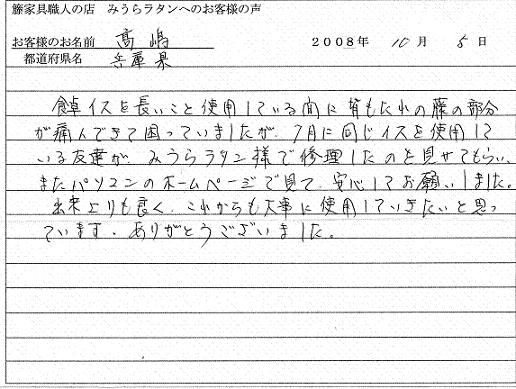 籐家具職人の店 みうらラタンへのお客様の声
お客様のお名前 高嶋 2008年 10月 5日
都道府県名 兵庫県
食卓イスを長いこと使用している間に背もたれの藤の部分
が痛んできて困っていましたが、7月に同じイスを使用して
いる友達が、みうらラタン様で修理したのを見せてもらい、
またパソコンのホームページで見て、安心してお願いしました。
出来上りも良く、これからも大事に使用していきたいと思っ
ています。ありがとうございました。